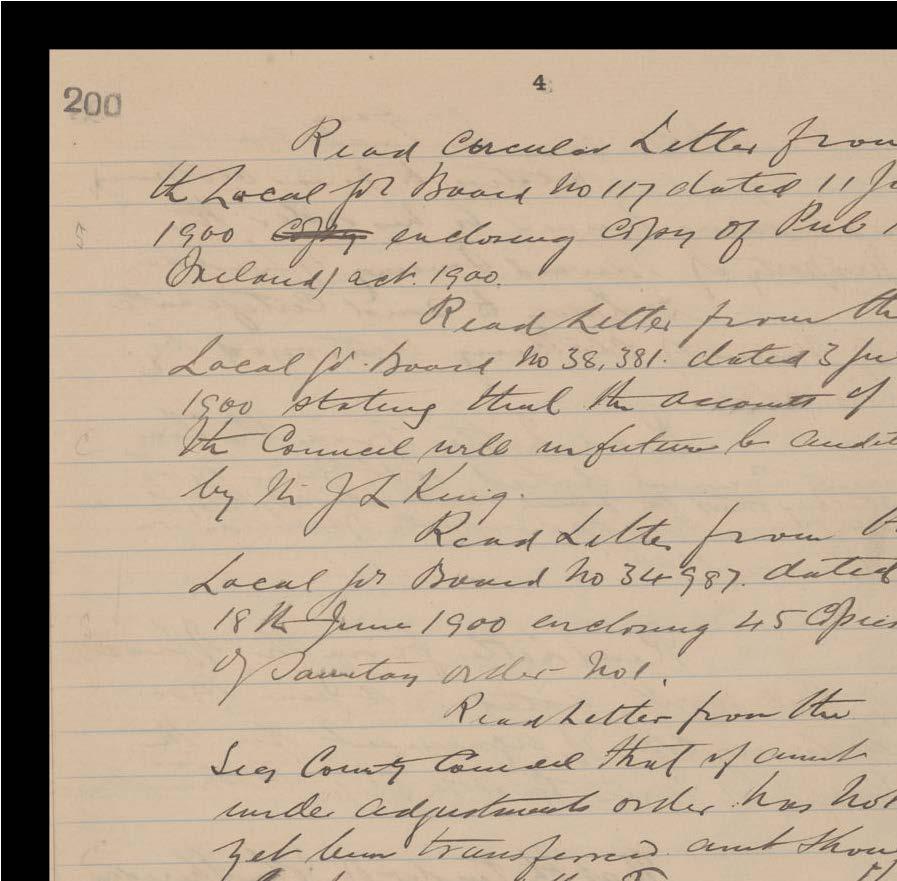 200
4
Read Circular Letter from
the Local Gov Board No 117 dated 11 Ju
1900 enclosing Copy of Pub
Ireland) act. 1900.
Read Letter from th
Local Gov. Board No 38,381. dated 3 Ju
1900 stating that the accounts of
the Council will in future be audite
by Mr J L King.
Read Letter from
Local Gov Board No 34987. dated
18th June 1900 enclosing 45 Copies
of Sanitary order No 1.
Read Letter from the
Secy County Council that if amt
under adjustments order has not
yet been transferred amt shou